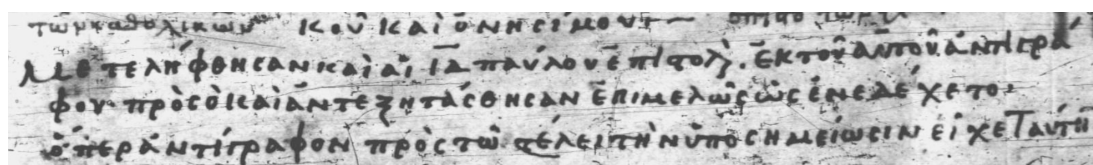 τῶν καθολικῶν κοῦ καὶ ὀνησίμου:~
μετελήφθησαν καὶ αἱ ι̅δ̅ παύλου ἐπιστολ. ἐκ τοῦ αὐτοῦ ἀντιγρά
φου πρὸς ὃ καὶ ἀντεξητάσθησαν ἐπιμελῶς ὡς ἐνεδέχετο·
ὅπερ ἀντίγραφον πρὸς τῶ τέλει τὴν ὑποσημείωσιν εἶχε ταύτη